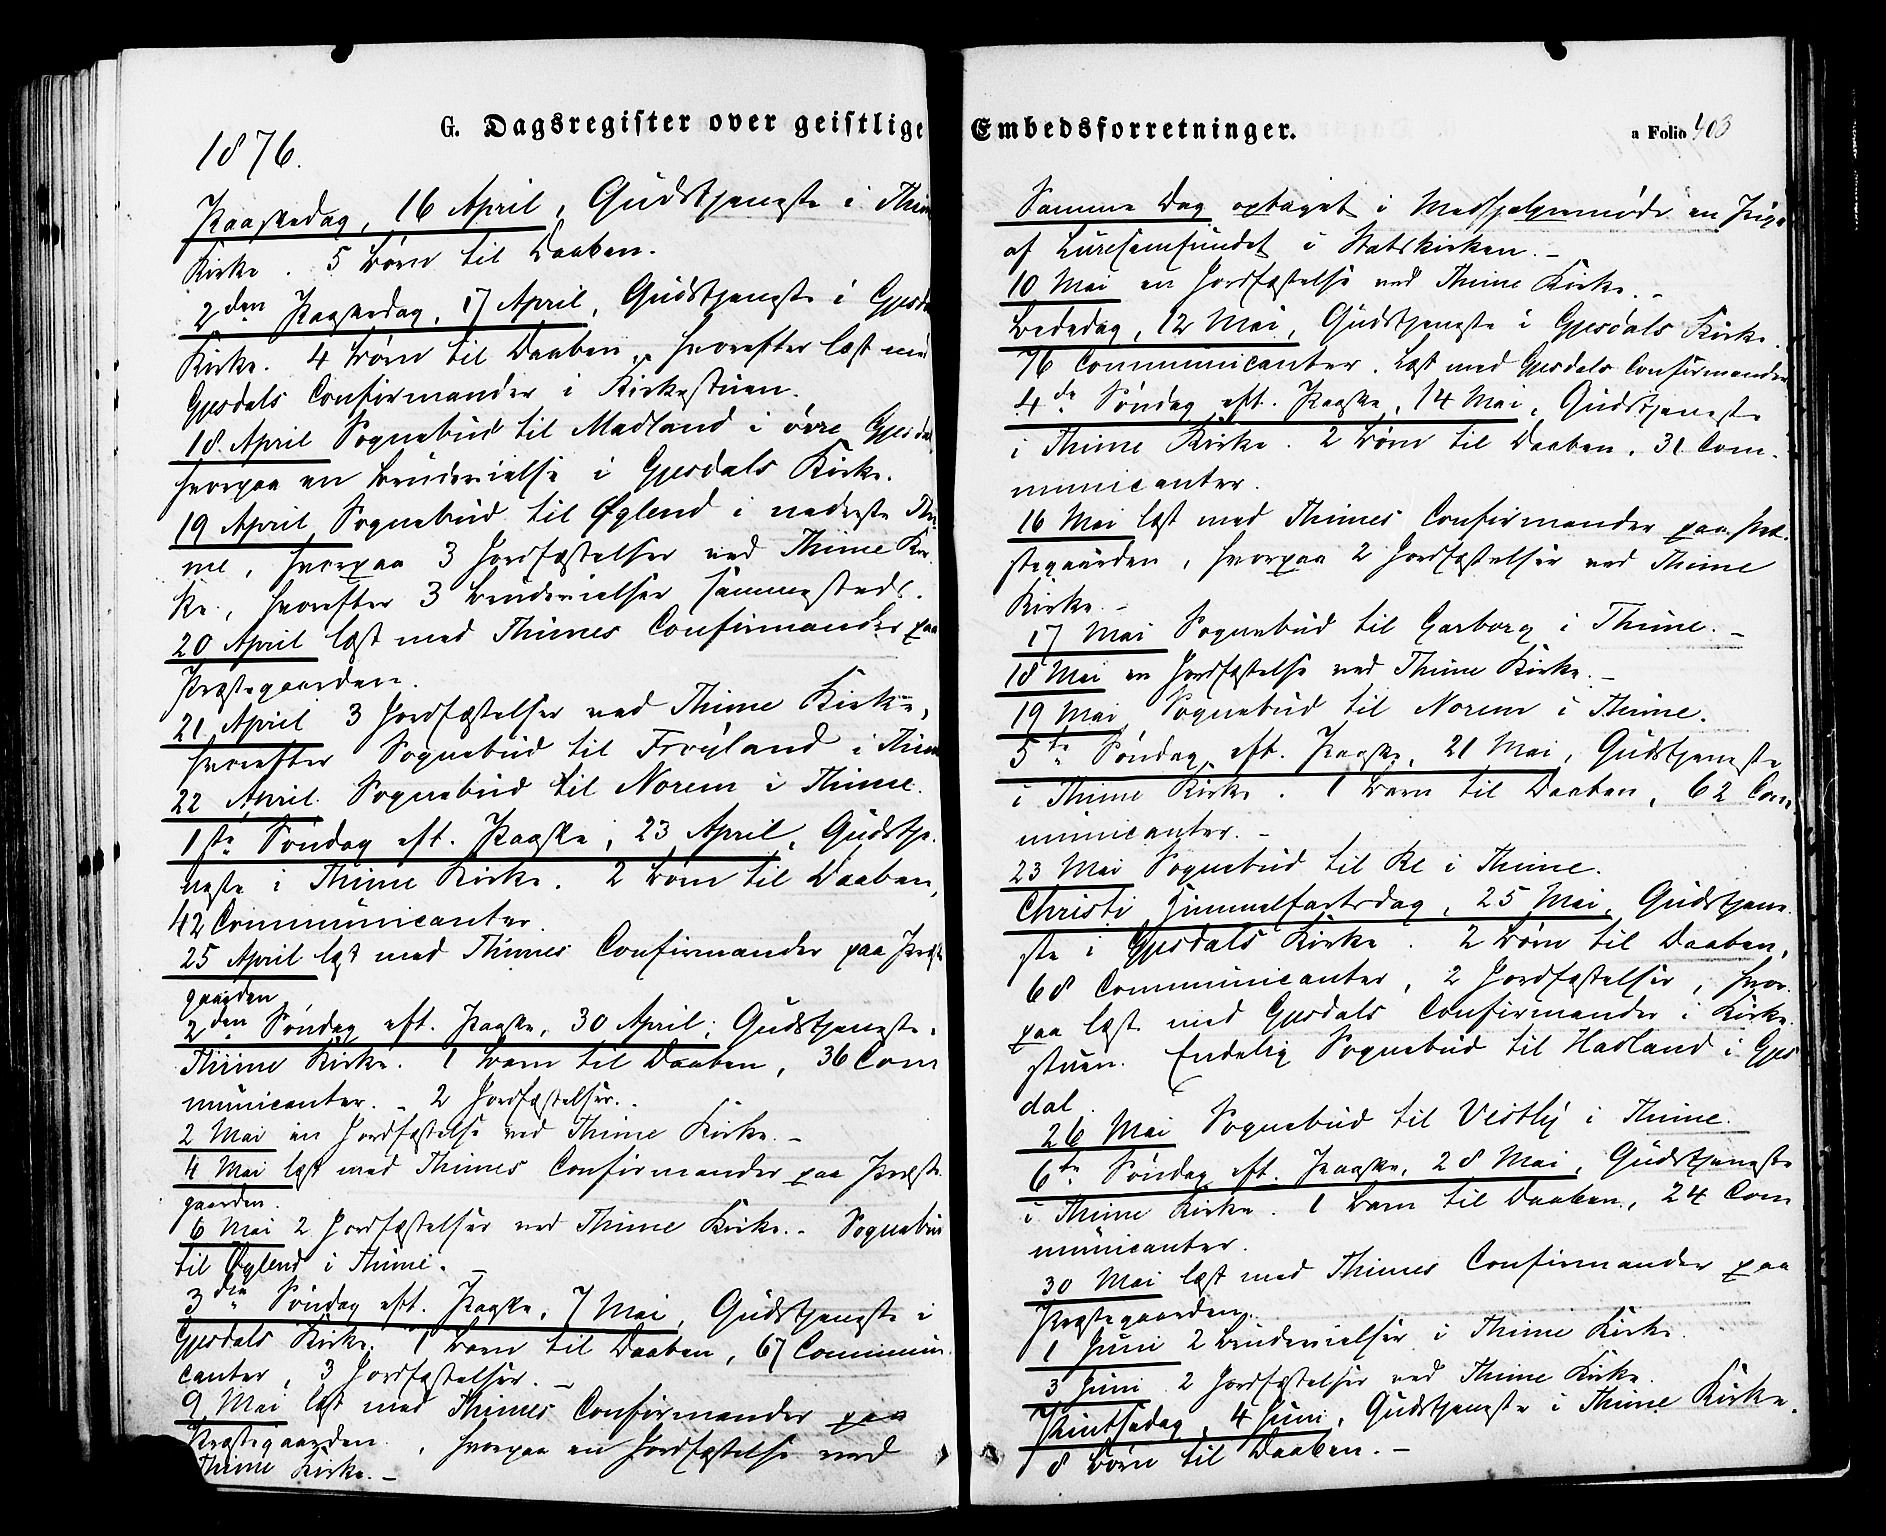 G. Dagsregister over geistlige
1876.
Paaskedag, 16 April, Gudstjeneste i Thime
Kirke. 5 Børn til Daaben.
2den Paaskedag, 17 April, Gudstjeneste i Gjesdals
Kirke. 4 Børn til Daaben, hvorefter læst med
Gjesdals Confirmander i Kirkestuen.
18 April Sognebud til Madland i øvre Gjesdal
hvorpaa en Brudevielse i Gjesdals Kirke.
19 April Sognebud til Øglend i nederste Thi-
me, hvorpaa 3 Jordfæstelser ved Thime Kir-
ke, hvorefter 3 Brudevielser sammesteds.
20 April læst med Thimes Confirmander paa
Præstegaarden.
21 April 3 Jordfæstelser ved Thime Kirke,
hvorefter Sognebud til Frøyland i Thime
22 April Sognebud til Norem i Thime.
1ste Søndag eft. Paaske, 23 April, Gudstje-
neste i Thime Kirke. 2 Børn til Daaben,
42 Communicanter.
25 April læst med Thimes Confirmander paa Præste
gaarden
2den Søndag eft. Paaske, 30 April, Gudstjeneste i
Thime Kirke. 1 Barn til Daaben, 36 Com
municanter. - 2 Jordfæstelser. -
2 Mai en Jordfæstelse ved Thime Kirke. -
4 Mai læst med Thimes Confirmander paa Præste
gaarden.
6 Mai 2 Jordfæstelser ved Thime Kirke. - Sognebud
til Øglend i Thime. -
3die Søndag eft. Paaske, 7 Mai, Gudstjeneste i
Gjesdals Kirke. 1 Barn til Daaben, 67 Communi
canter, 3 Jordfæstelser. -
9 Mai læst med Thimes Confirmander paa
Præstegaarden, hvorpaa en Jordfæstelse ved
Thime Kirke. -
Embedsforretninger.
a Folio 403
Samme Dag optaget i Medhjelpermøde en Pige
af Luresamfundet i Statskirken. -
10 Mai en Jordfæstelse ved Thime Kirke. -
Bededag, 12 Mai, Gudstjeneste i Gjesdals Kirke.
76 Communicanter. Læst med Gjesdals Confirmander
4de Søndag eft. Paaske, 14 Mai, Gudstjeneste
i Thime Kirke. 2 Børn til Daaben, 31 Com-
municanter.
16 Mai læst med Thimes Confirmander paa Præ-
stegaarden, hvorpaa 2 Jordfæstelser ved Thime
Kirke. -
17 Mai Sognebud til Garborg i Thime. -
18 Mai en Jordfæstelse ved Thime Kirke. -
19 Mai Sognebud til Norem i Thime.
5te Søndag eft. Paaske, 21 Mai, Gudstjeneste
i Thime Kirke. 1 Barn til Daaben, 62 Com-
municanter. -
23 Mai Sognebud til Re i Thime.
Christi Himmelfartsdag, 25 Mai, Gudstjene-
ste i Gjesdals Kirke. 2 Børn til Daaben,
68 Communicanter, 2 Jordfæstelser, hvor-
paa læst med Gjesdals Confirmander i Kirke-
stuen. Endelig Sognebud til Hadland i Gjes
dal.
26 Mai Sognebud til Vestly i Thime.
6te Søndag eft. Paaske, 28 Mai, Gudstjeneste
i Thime Kirke. 1 Barn til Daaben, 24 Com
municanter.
30 Mai læst med Thimes Confirmander paa
Præstegaarden.
1 Juni 2 Brudevielser i Thime Kirke.
3 Juni 2 Jordfæstelser ved Thime Kirke.
Pintsedag, 4 Juni, Gudstjeneste i Thime Kirke.
8 Børn til Daaben. -